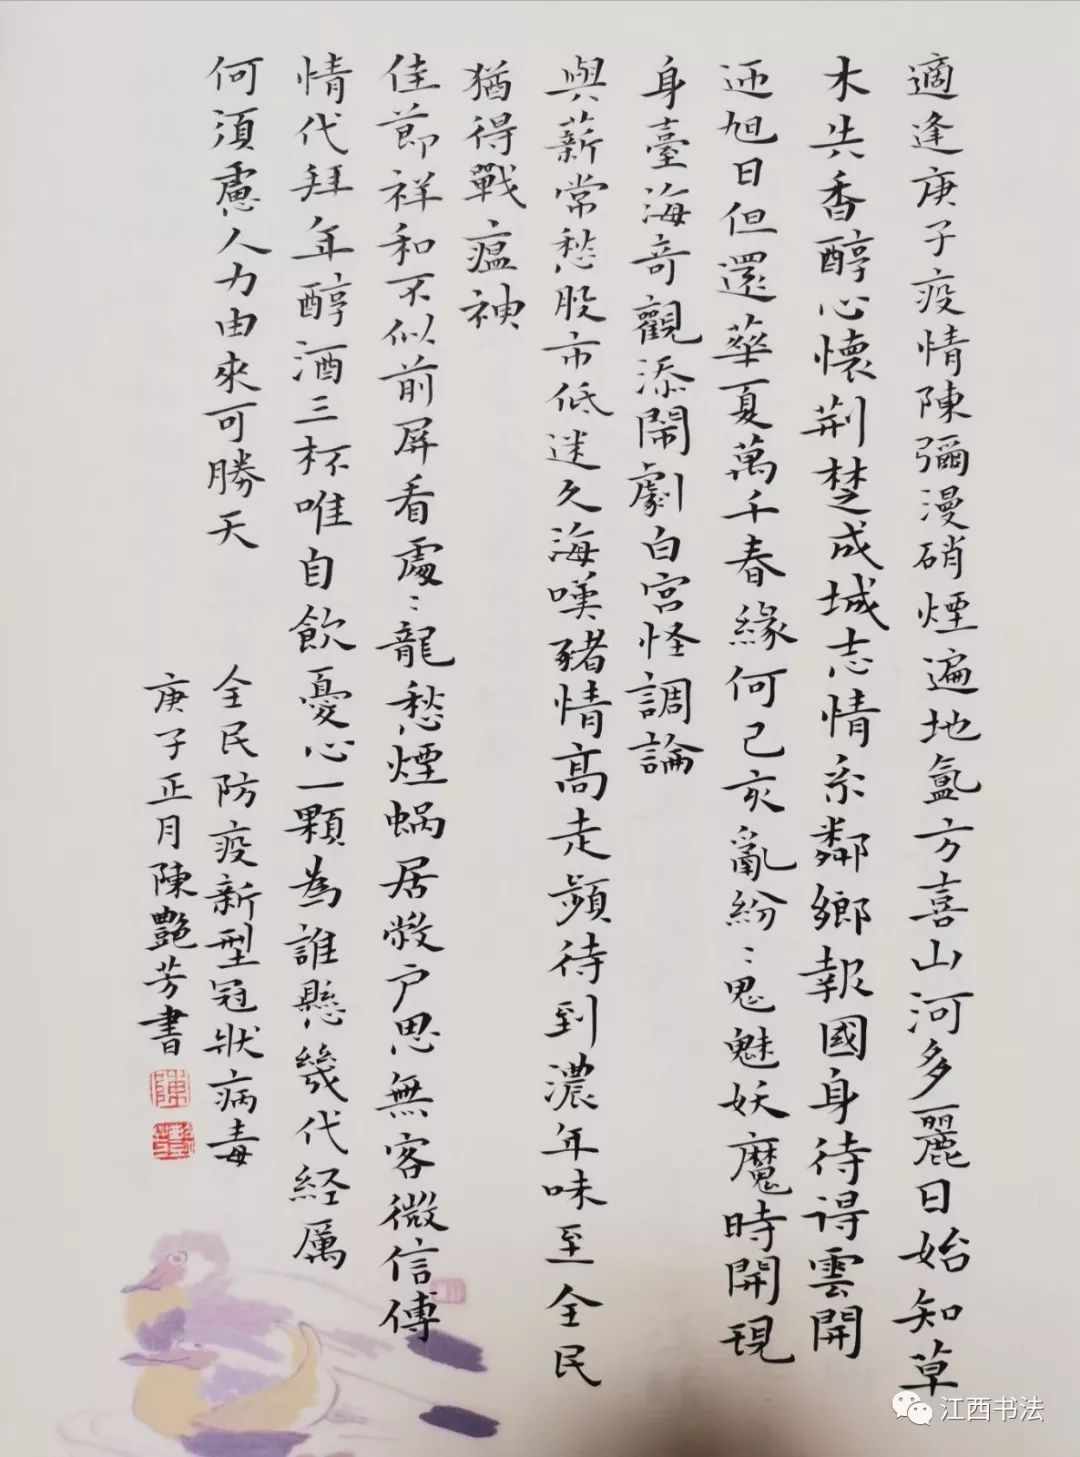 適逢庚子疫情陳彌漫硝煙遍地氳方喜山河多麗日始知草
木共香醇心懷荊楚成城志情系鄰鄉報國身待得雲開
迊旭日但還華夏萬千春緣何己亥亂紛〻鬼魅妖魔時開現
身臺海奇觀添鬧劇白宮怪調論
與薪常愁股市低迷久海嘆豬情高走頻待到濃年味至全民
猶得戰瘟神
佳節祥和不似前屏看處〻龍愁煙蝸居檄户思無客微信傳
情代拜年醇酒三杯唯自飲憂心一顆為誰懸幾代经厲
何須慮人力由來可勝天
全民防疫新型冠狀病毒
庚子正月陳艷芳書
江西书法